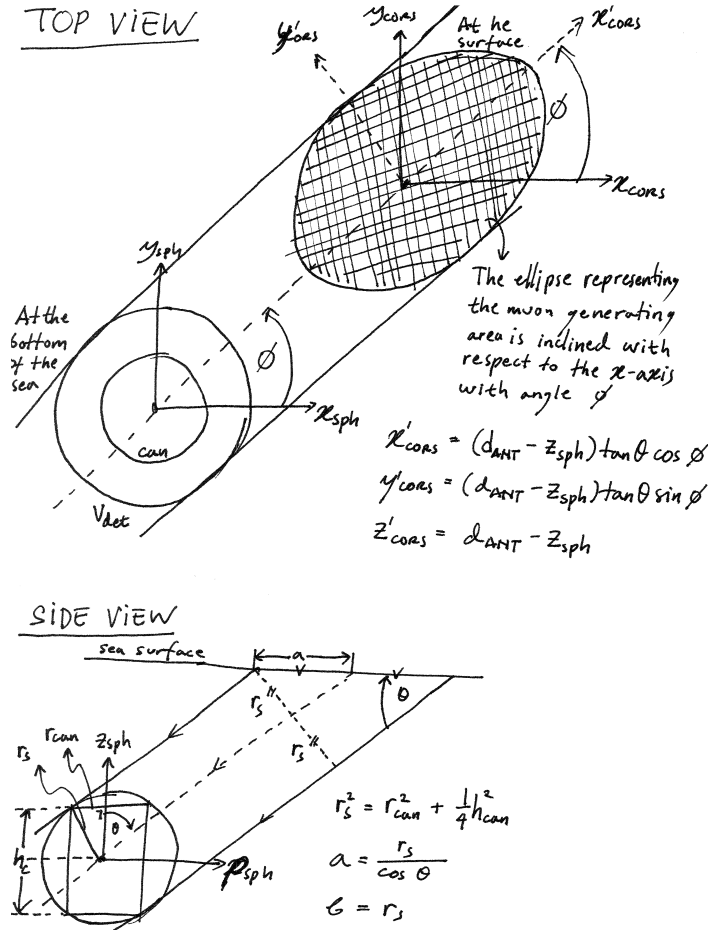 TOP VIEW
y_CORS
At he
surface
x'_CORS
y'_CORS
ϕ
x_CORS
y_sph
At the
bottom
of the
sea
ϕ
x_sph
can
V_det
The ellipse representing
the muon generating
area is inclined with
respect to the x-axis
with angle ϕ
x'_CORS = (d_ANT − z_sph) tan θ cos ϕ
y'_CORS = (d_ANT − z_sph) tan θ sin ϕ
z'_CORS = d_ANT − z_sph
SIDE VIEW
sea surface
a
θ
r_s
r_s
r_can
z_sph
r_s
θ
h_c
ρ_sph
r_s² = r_can² + ¼ h_can²
a = r_s / cos θ
b = r_s